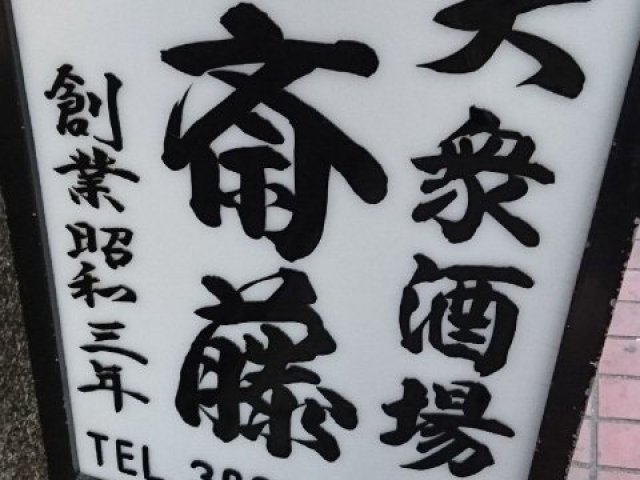 大衆酒場
斎藤
創業昭和三年
TEL